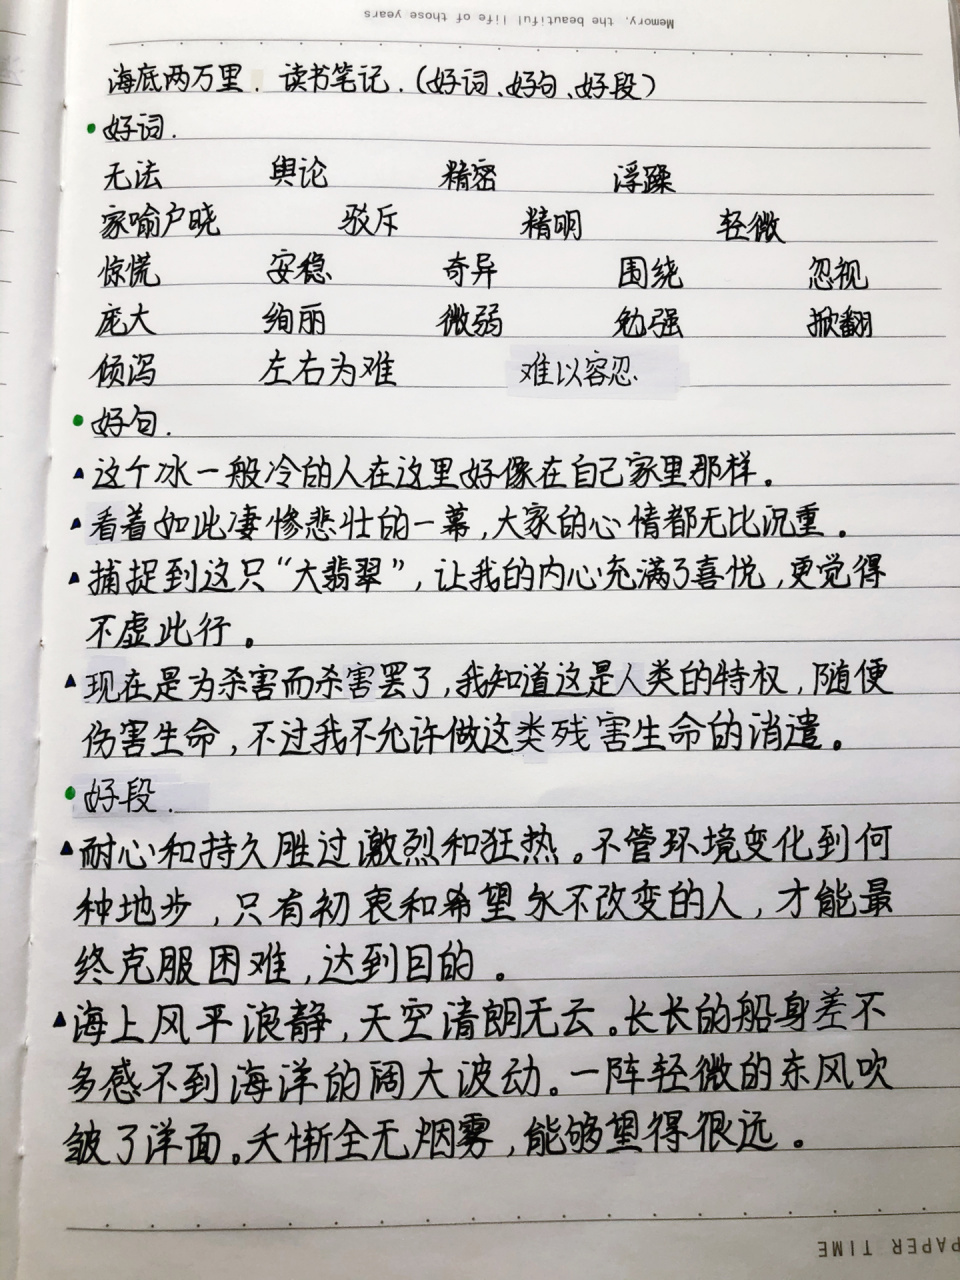 Memory, the beautiful life of those years
海底两万里. 读书笔记.(好词、好句、好段)
好词.
无法 舆论 精密 浮躁
家喻户晓 驳斥 精明 轻微
惊慌 安稳 奇异 围绕 忽视
庞大 绚丽 微弱 勉强 掀翻
倾泻 左右为难 难以容忍
好句.
这个冰一般冷的人在这里好像在自己家里那样。
看着如此凄惨悲壮的一幕,大家的心情都无比沉重。
捕捉到这只“大翡翠”,让我的内心充满了喜悦,更觉得
不虚此行。
现在是为杀害而杀害罢了,我知道这是人类的特权,随便
伤害生命,不过我不允许做这类残害生命的消遣。
好段.
耐心和持久胜过激烈和狂热。不管环境变化到何
种地步,只有初衷和希望永不改变的人,才能最
终克服困难,达到目的。
海上风平浪静,天空清朗无云。长长的船身差不
多感不到海洋的阔大波动。一阵轻微的东风吹
皱了洋面。天惭全无烟雾,能够望得很远。
PAPER TIME